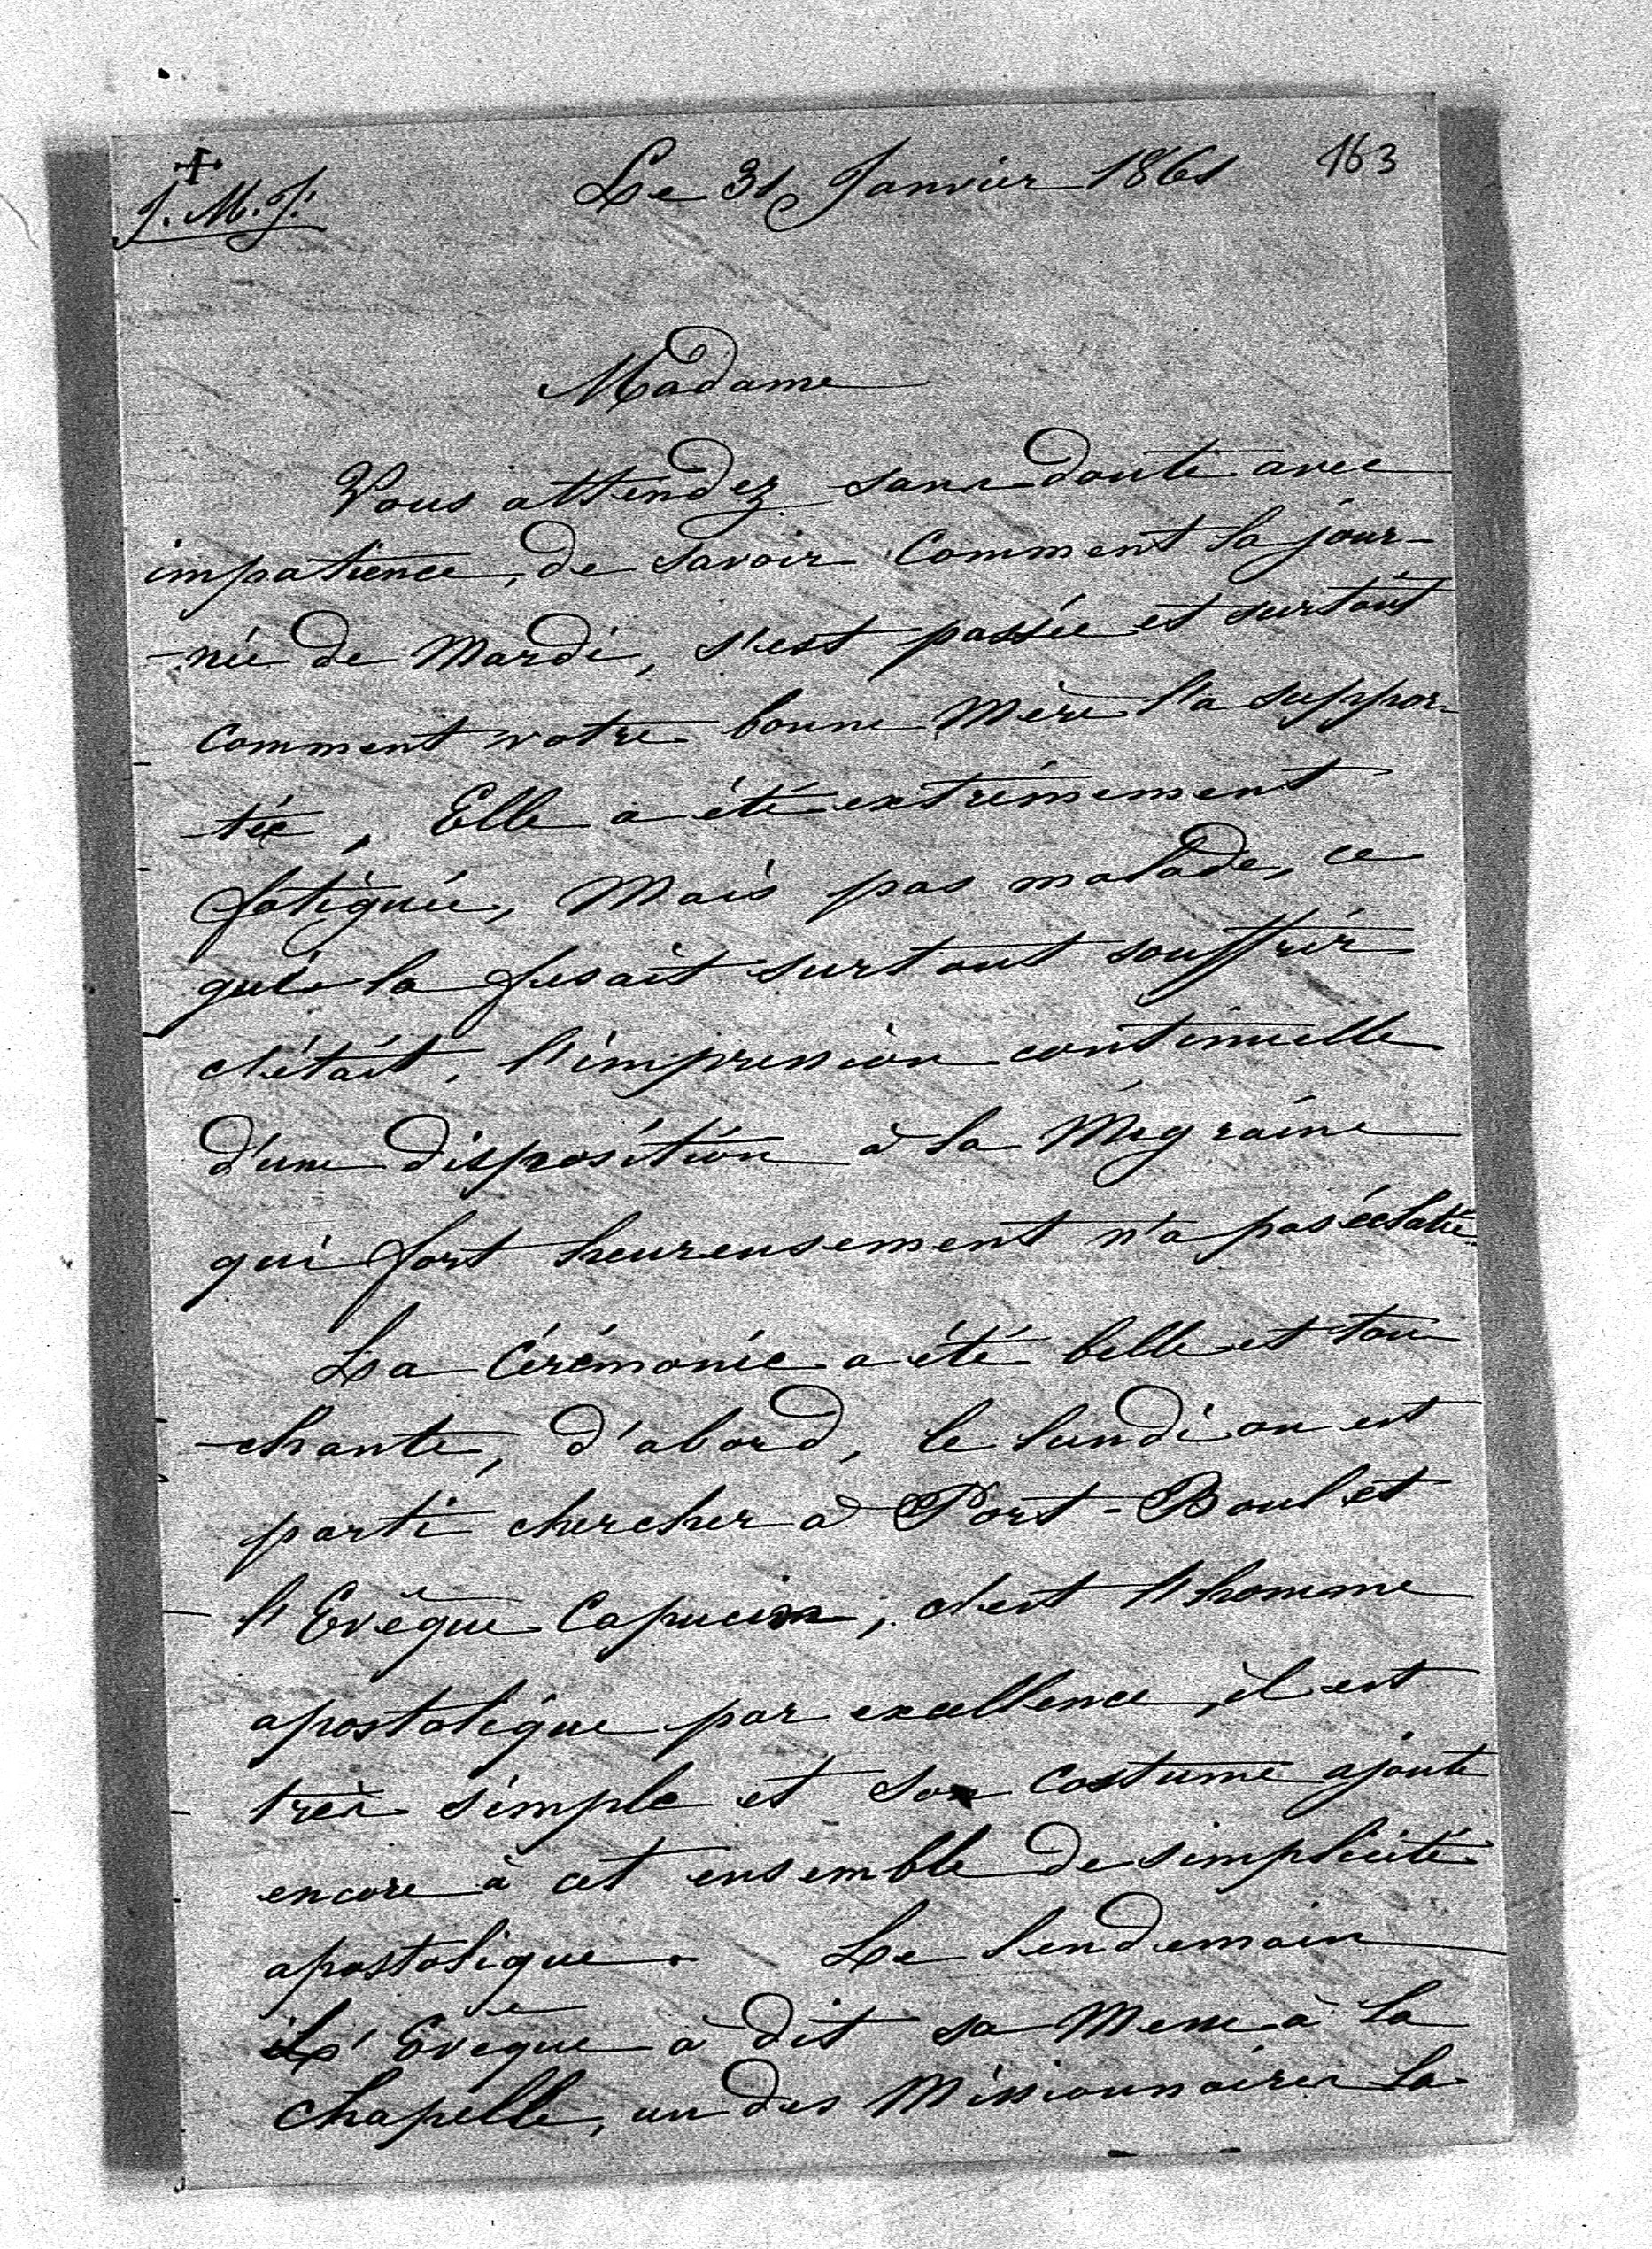 ✝
J. M. J. Le 31 Janvier 1861 163
Madame
Vous attendez sans doute avec
impatience, de savoir comment la jour-
-née de Mardi, s'est passée et surtout
comment votre bonne Mère l'a suppor-
-tée, Elle a été extrêmement
fatiguée, Mais pas malade, ce
qui la fesait surtout souffrir
c'était, l'impression continuelle
d'une disposition à la Migraine
qui fort heureusement n'a pas éclaté
La Cérémonie a été belle et tou
-chante, d'abord, le lundi on est
parti chercher à Port-Boulet
l'Evêque Capucin; c'est l'homme
apostolique par excellence, il est
très simple et son costume ajoute
encore à cet ensemble de simplicité
apostolique. Le lendemain
L'Evêque à dit sa Messe à la
chapelle, un des Missionnaires la